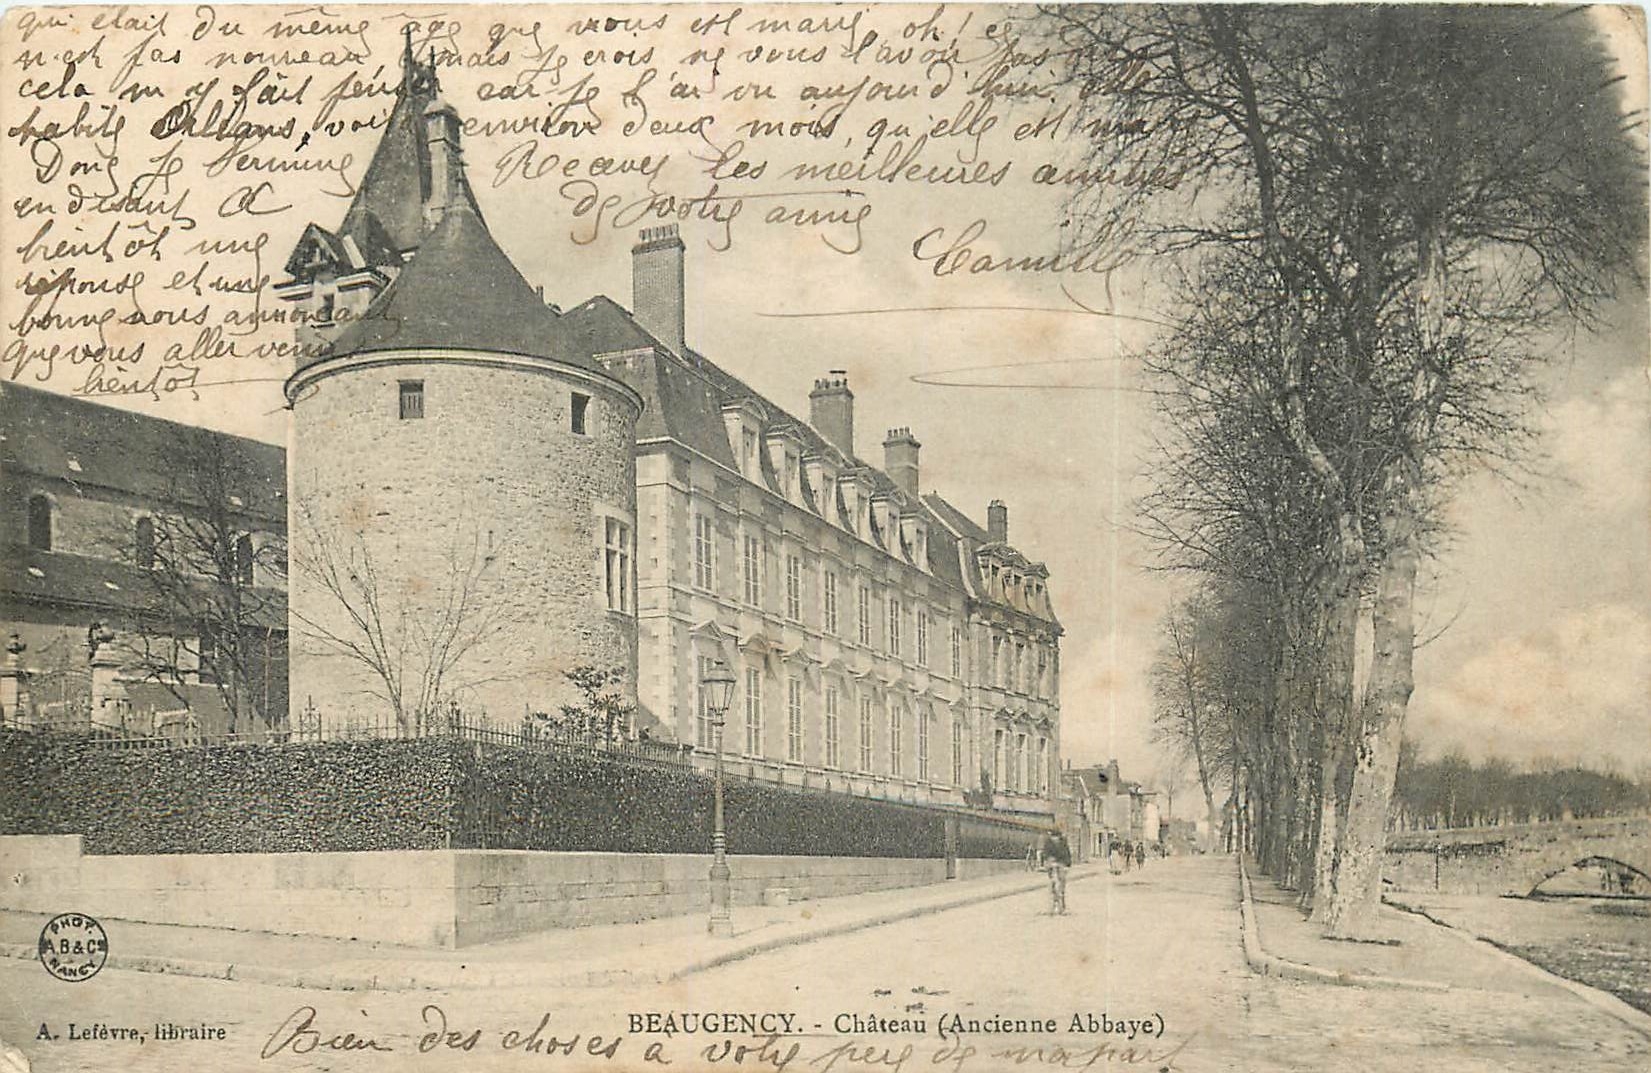 qui était du même âge que vous est marié, oh! ce
n'est pas nouveau, mais je crois ne vous l'avoir pas
cela m'y fait penser car je l'ai vu aujourd'hui, elle
habite Orléans, voici environ deux mois, qu'elle est
Donc je termine
en disant A
bientôt une
réponse et une
bonne nous annoncant
que vous aller venir
bientôt
Recevez les meilleures amitiés
de votre amie
Camille
PHOT.
A.B & Cie
NANCY
A. Lefèvre, libraire
BEAUGENCY. - Château (Ancienne Abbaye)
Bien des choses à votre père de ma part